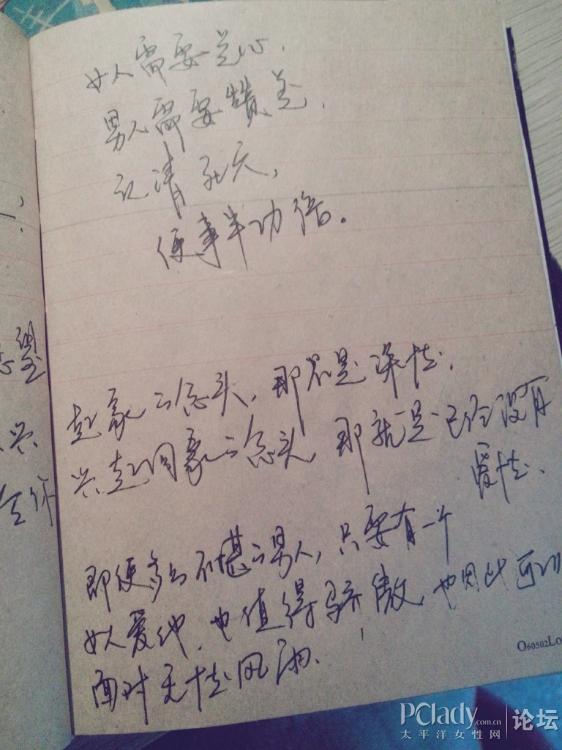 女人需要关心,
男人需要赞美,
记清死穴,
便事半功倍。
家之念头,那不是情.
兴起回家之念头 那就是已经没有
爱情.
即便多么不堪之男人,只要有一个
女人爱他,也值得骄傲,也因此可以
面对无情风雨.
兴
合作
O60502Lo
PClady.com.cn 论坛
太平洋女性网